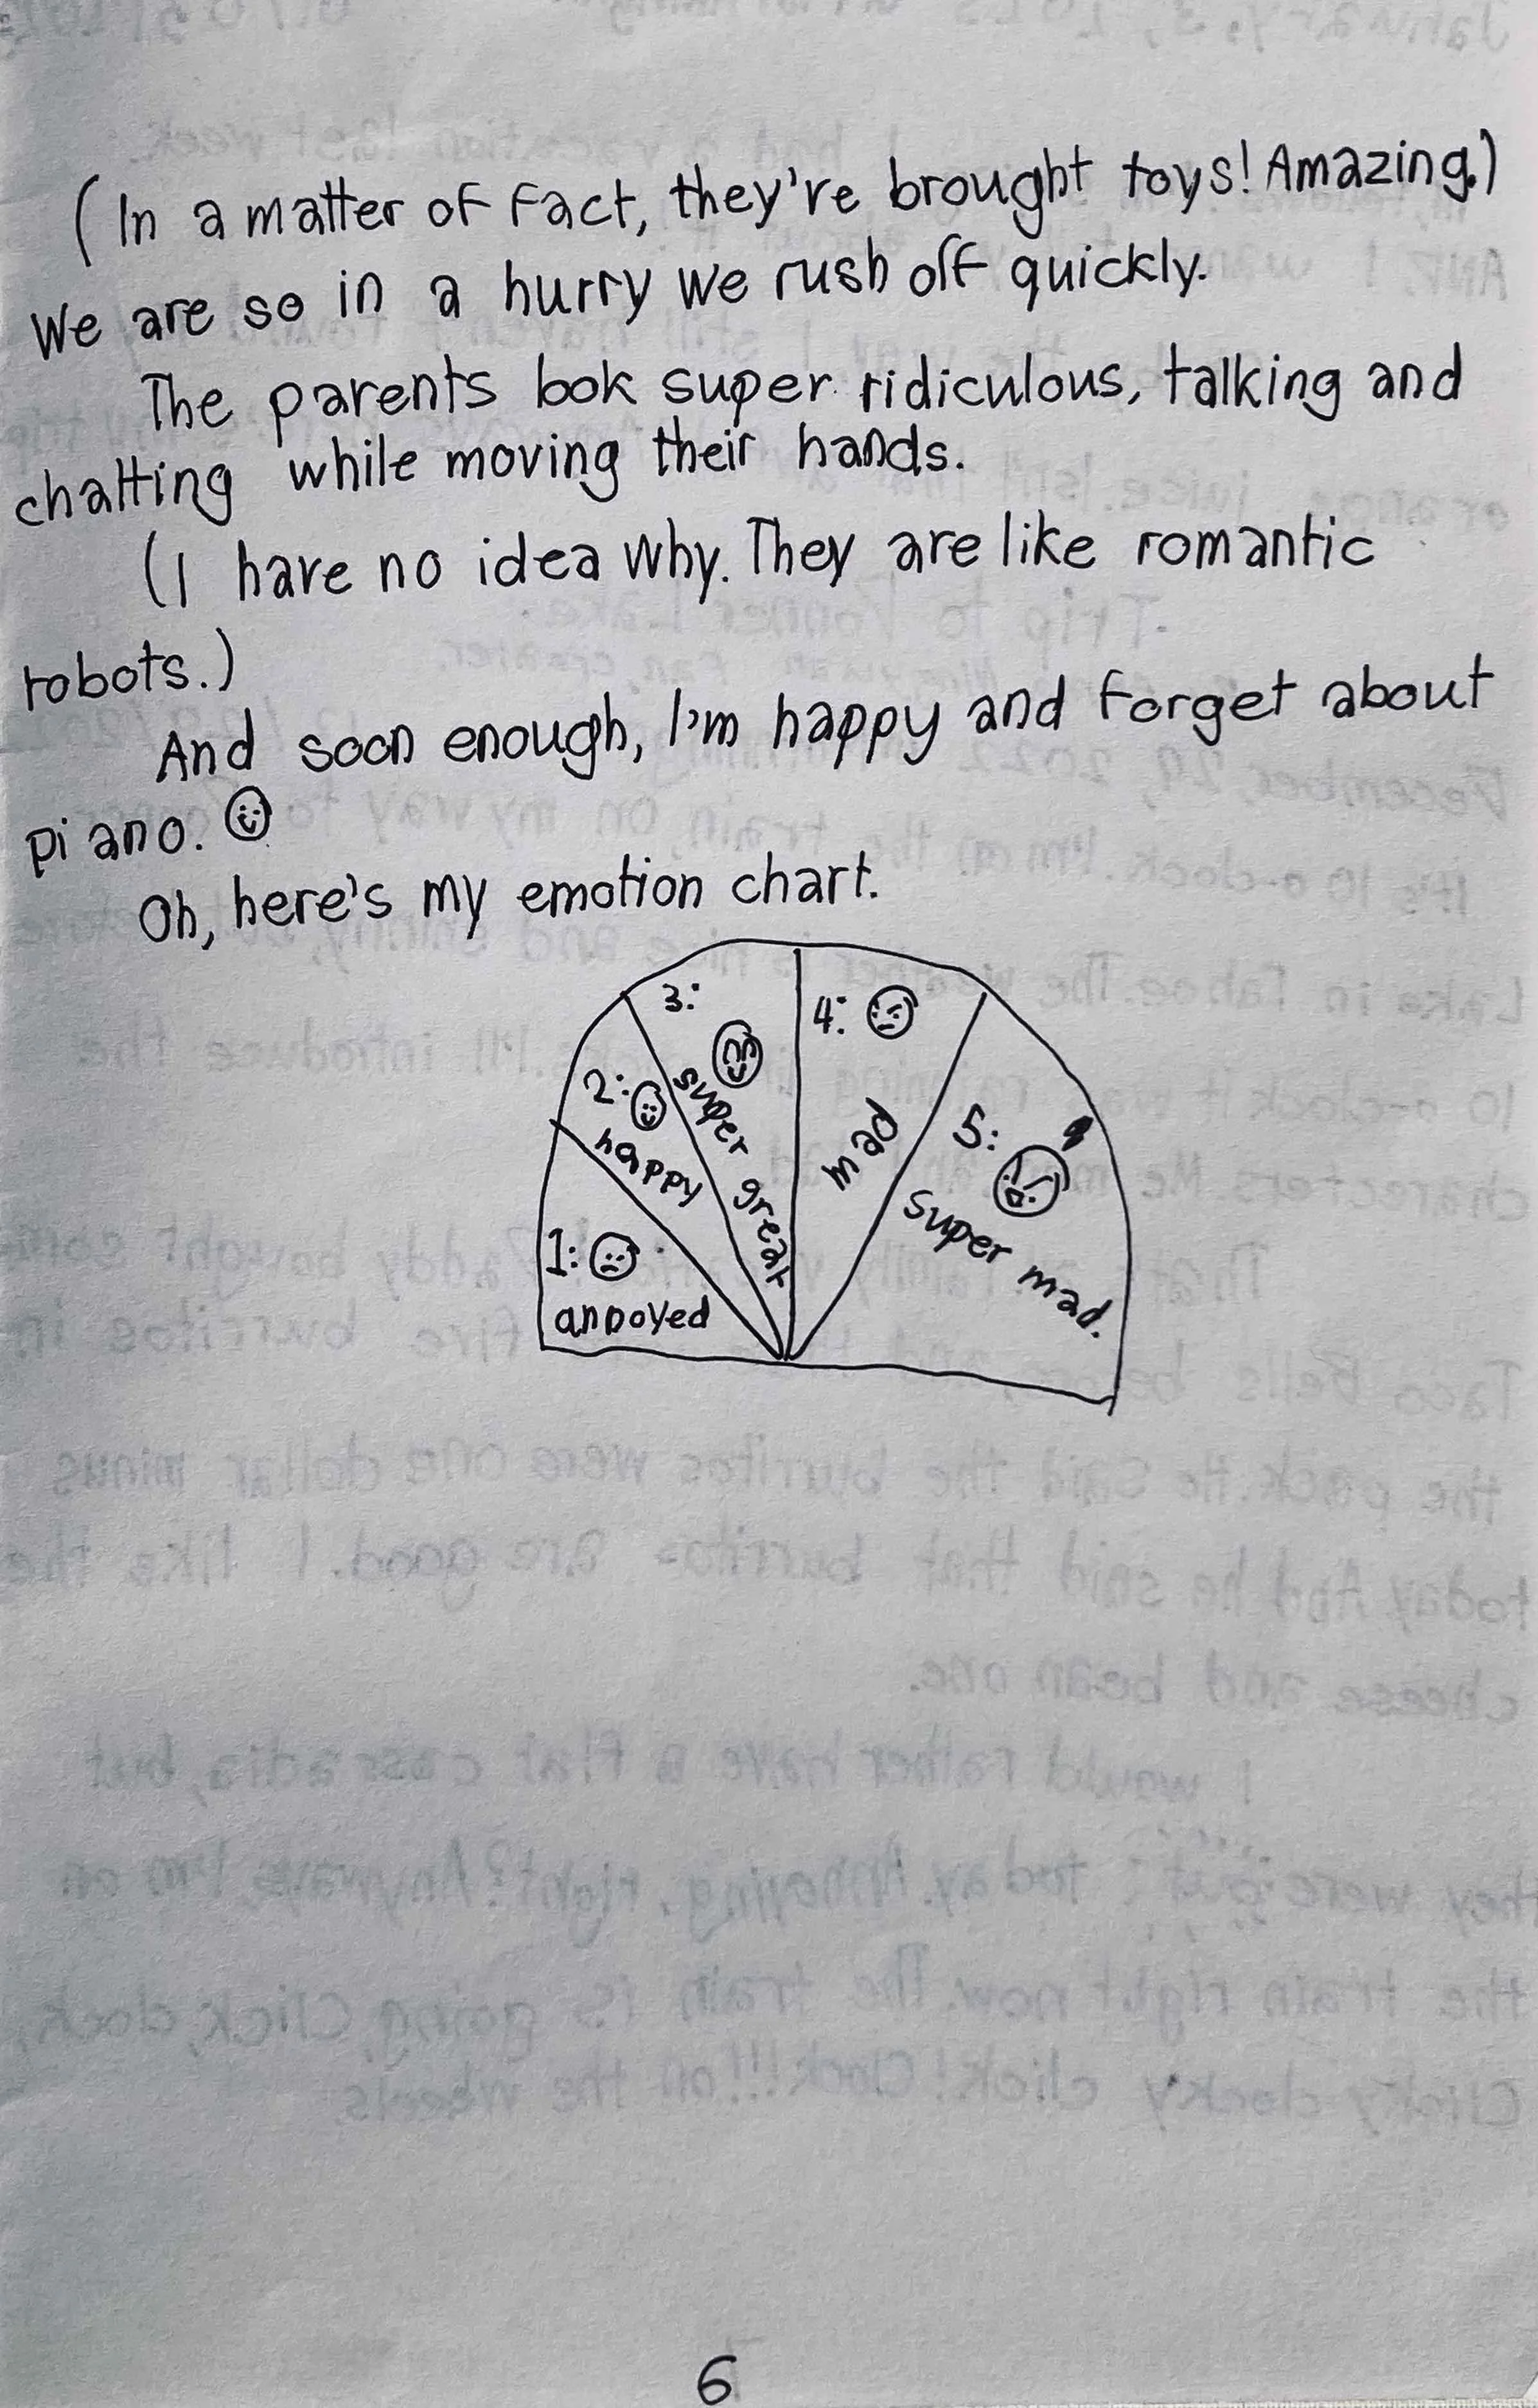 (In a matter of fact, they're brought toys! Amazing.)
We are so in a hurry we rush off quickly.
The parents look super ridiculous, talking and
chatting while moving their hands.
(I have no idea why. They are like romantic
robots.)
And soon enough, I'm happy and forget about
piano.
Oh, here's my emotion chart.
1:
annoyed
2:
happy
3:
super great
4:
mad
5:
super mad.
6